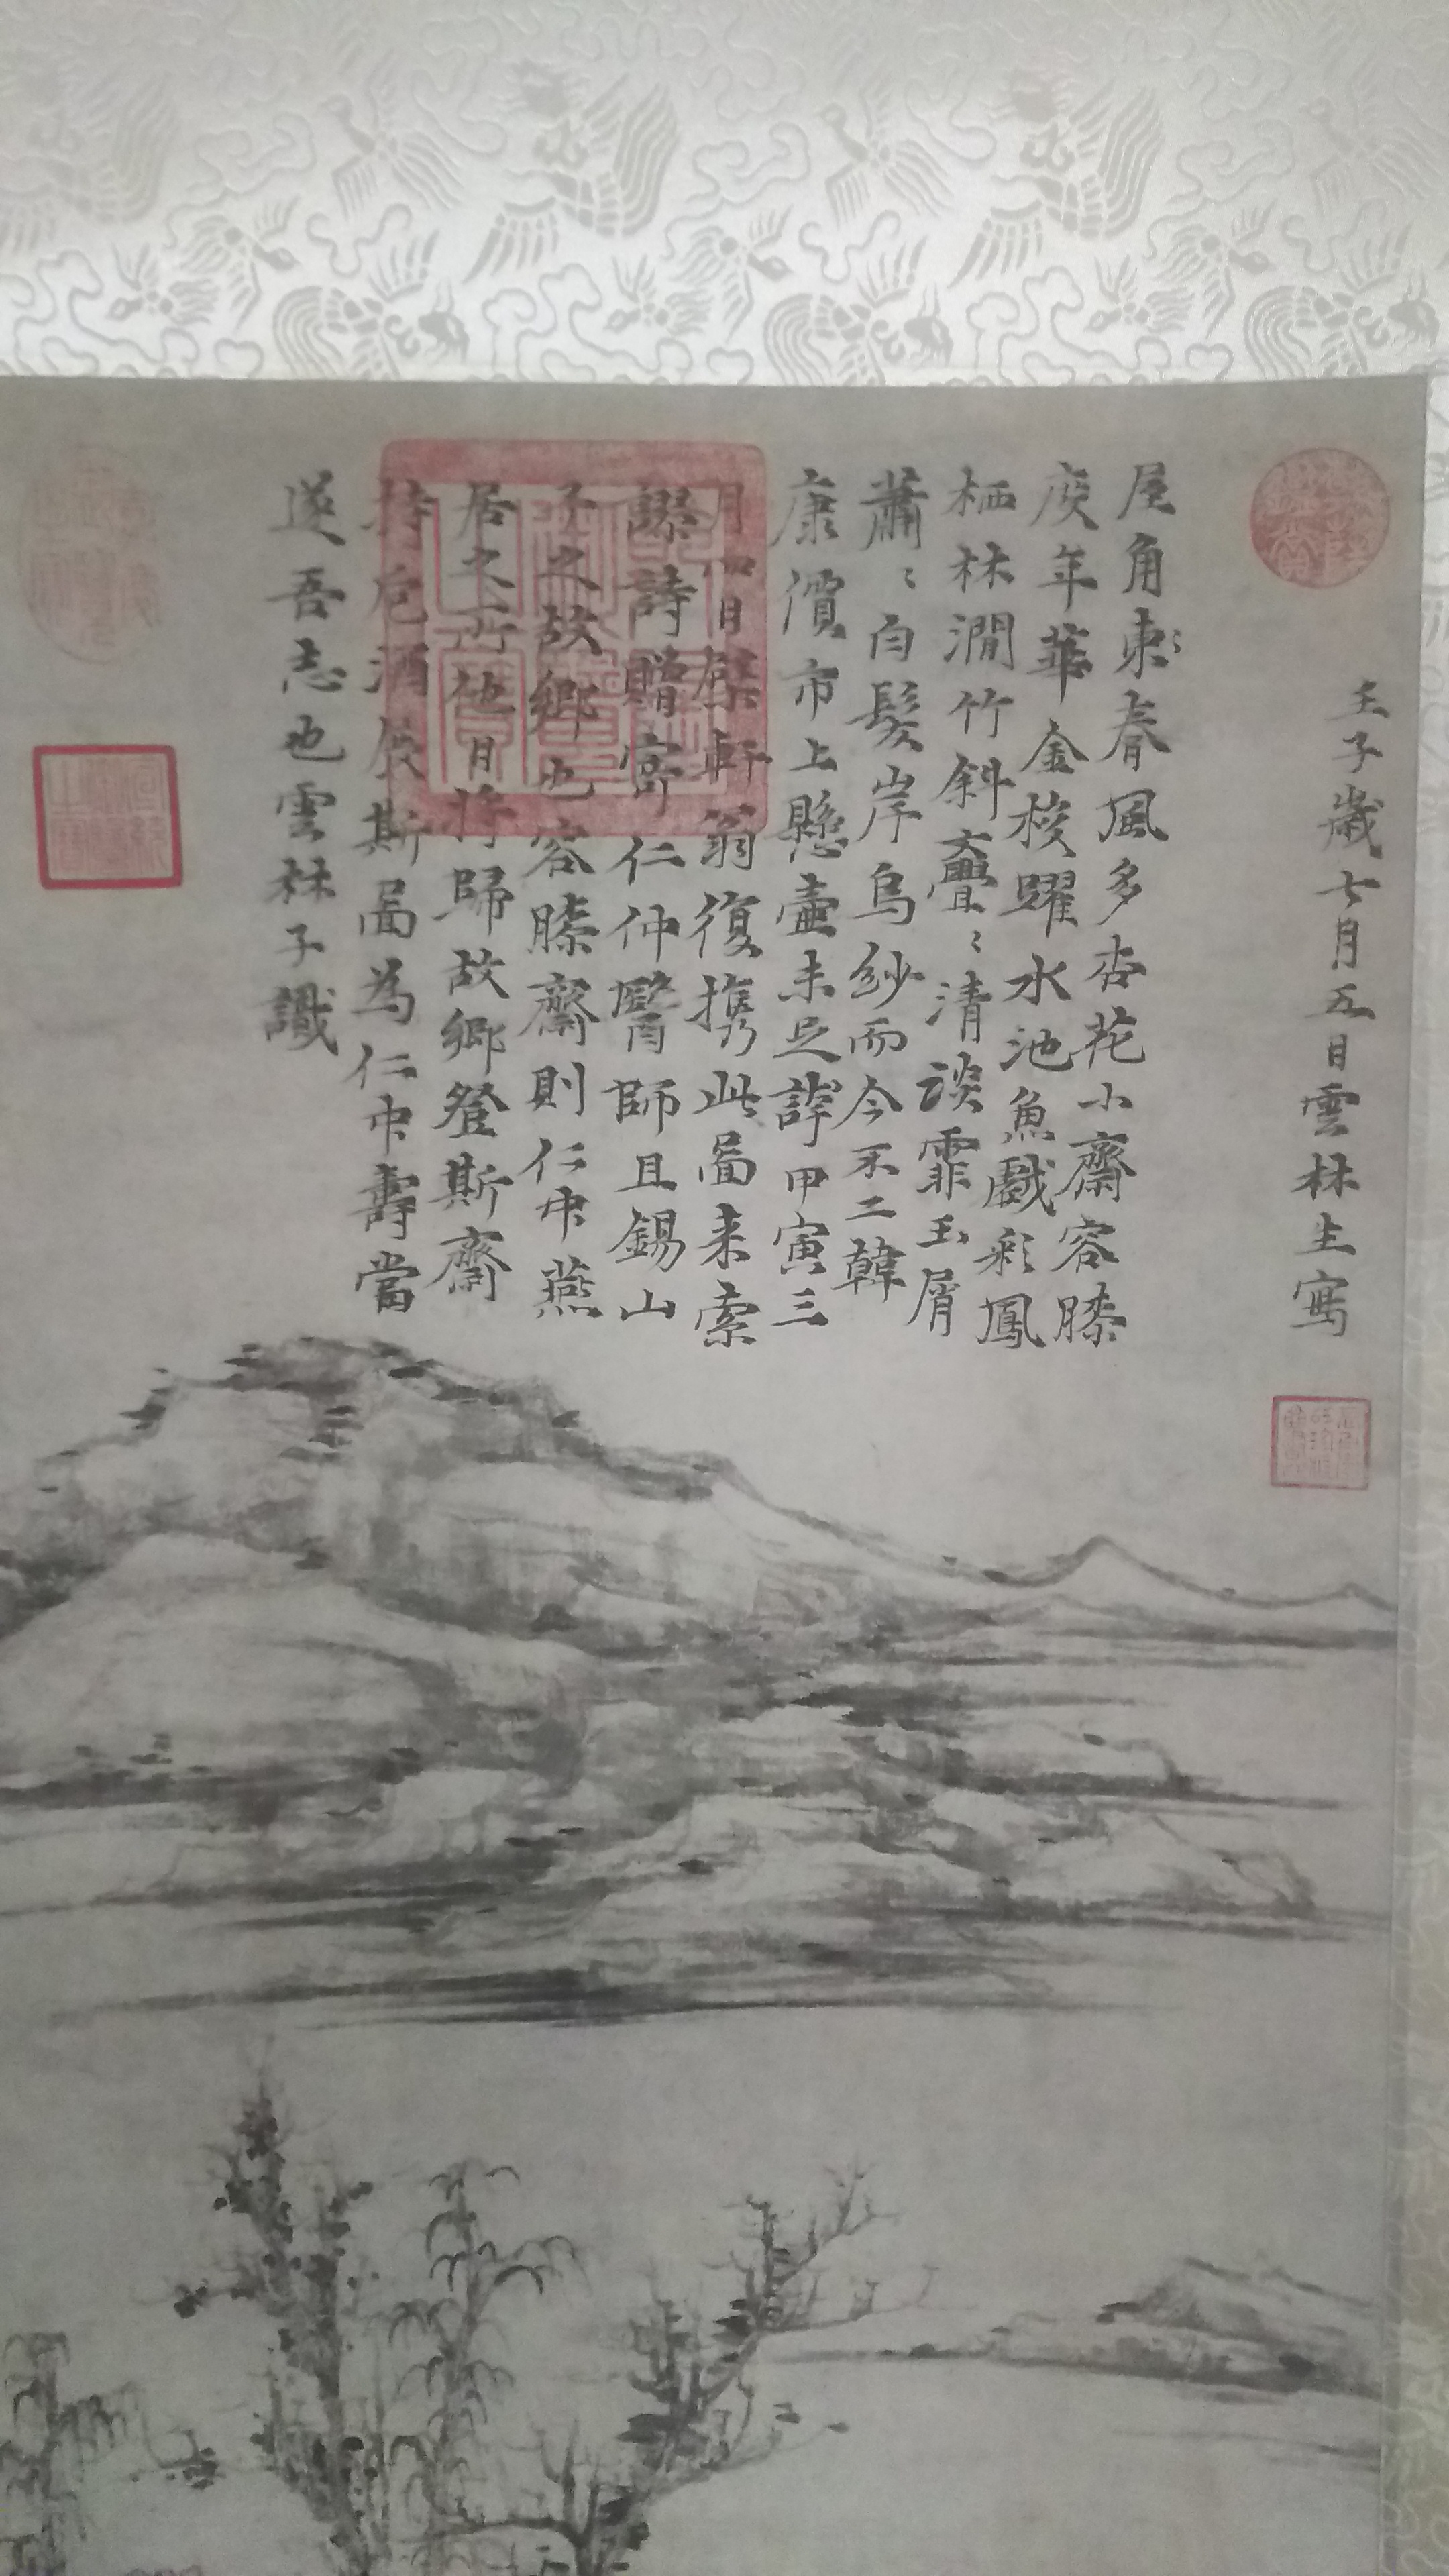 壬子歲七月五日雲林生寫
屋角東〻春風多杏花小齋容膝
度年華金梭躍水池魚戲彩鳳
栖林澗竹斜亹〻清談霏玉屑
蕭〻白髮岸烏紗而今不二韓
康價市上懸壺未足誇甲寅三
月四日檗軒翁復携此啚来索
謬詩贈寄仁仲醫師且錫山
予之故鄉也容膝齋則仁中燕
居之所他日將歸故鄉登斯齋
持巵酒展斯啚為仁中壽當
遂吾志也雲林子識